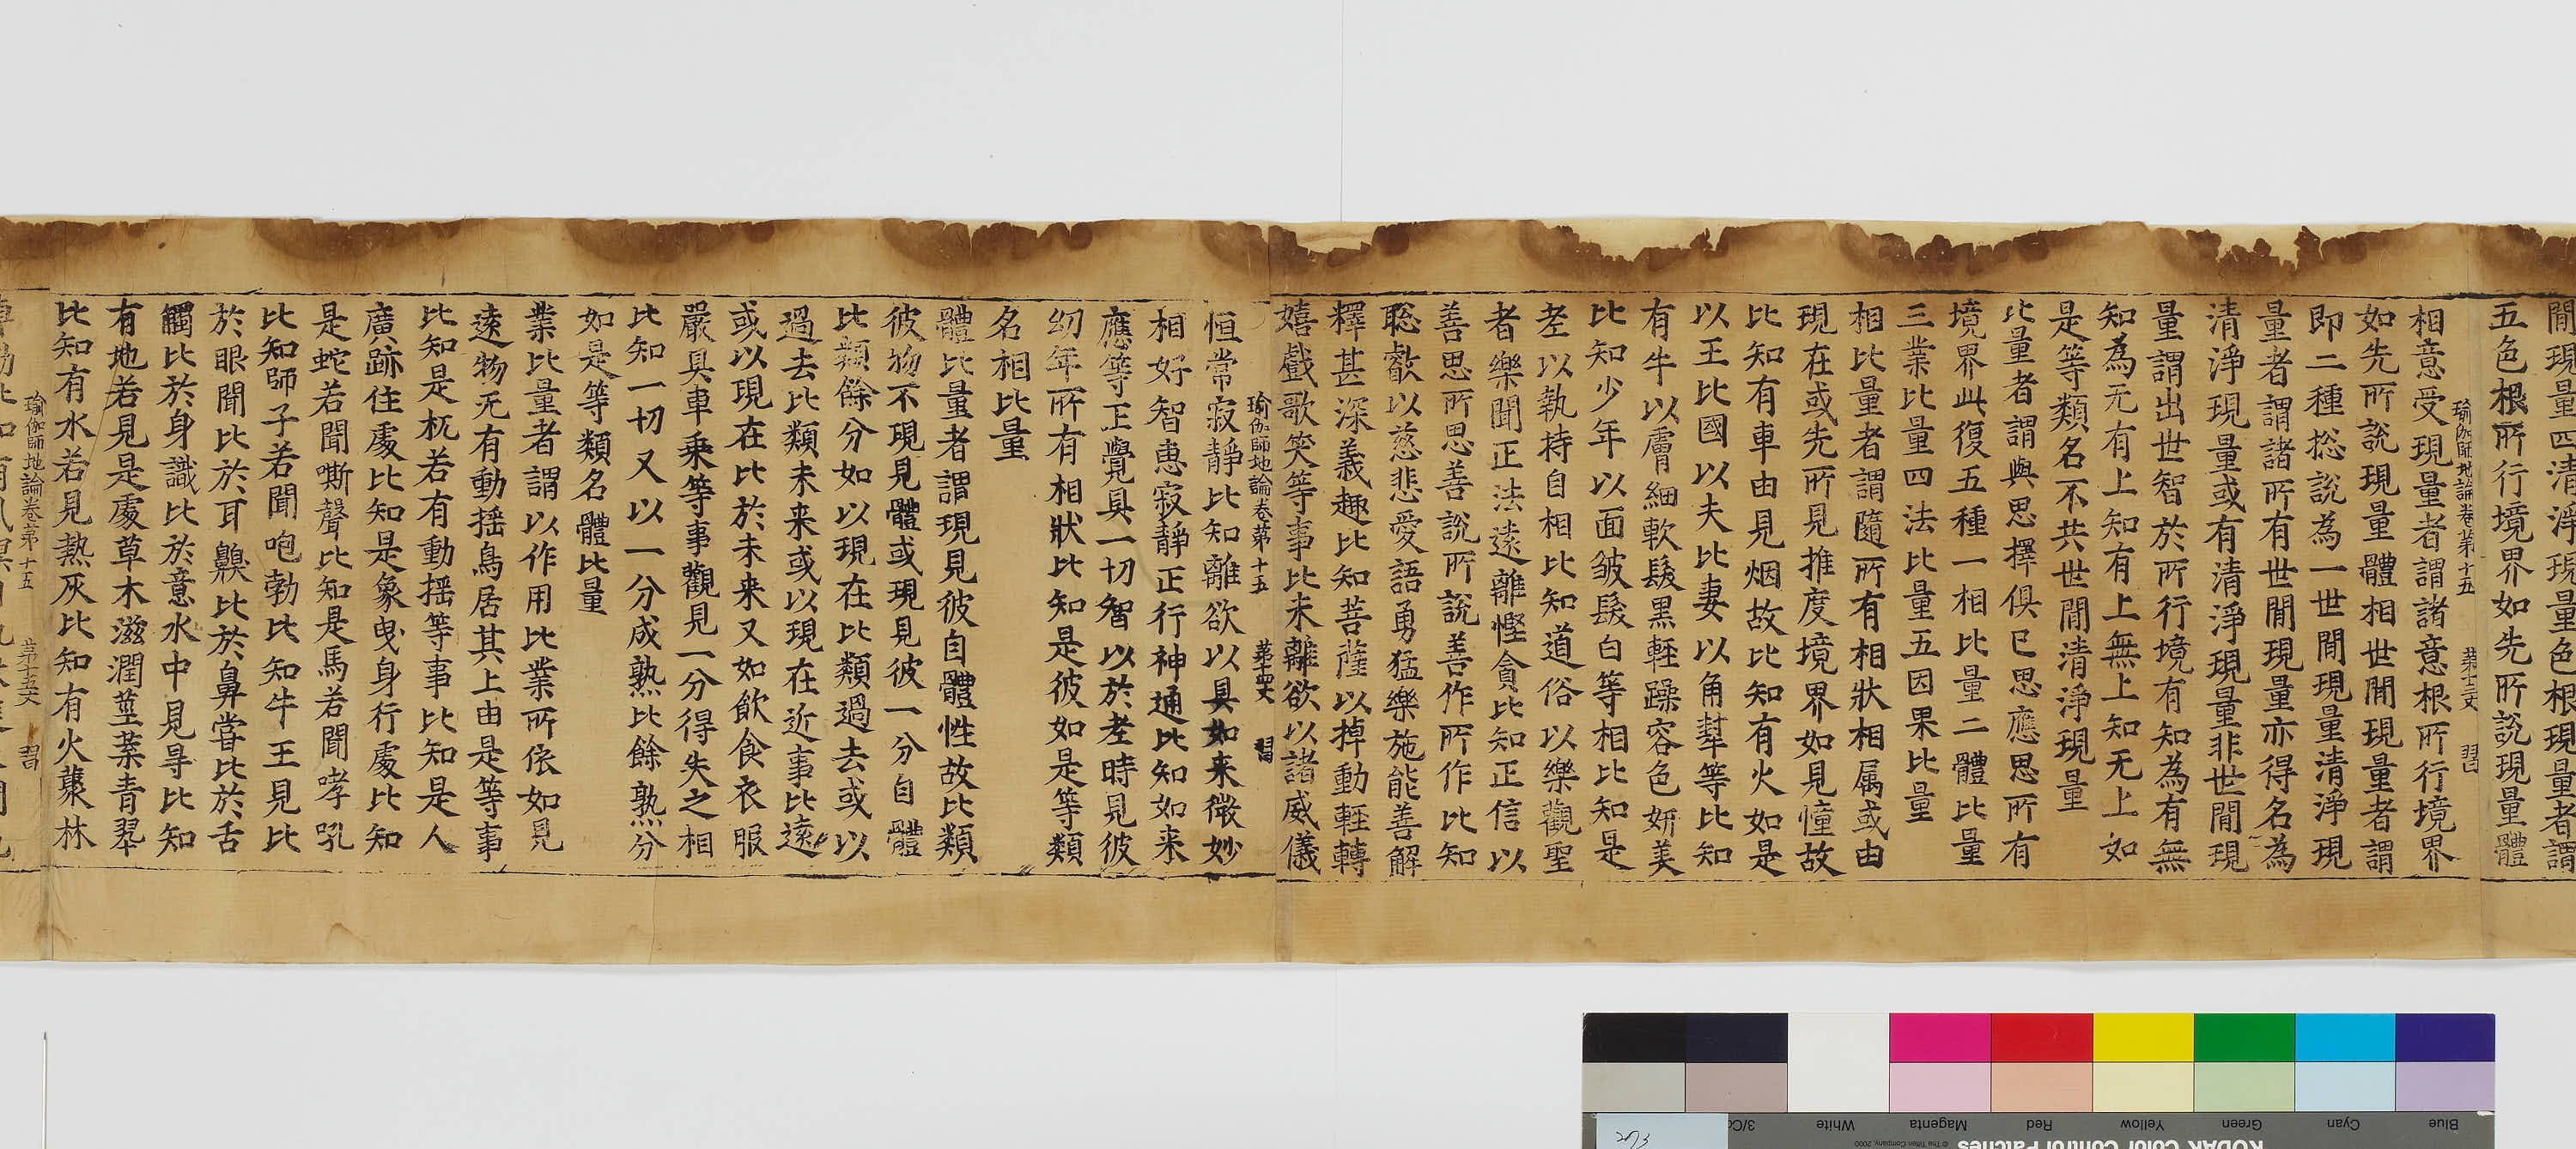 間現量四清淨現量色根現量者謂
五色根所行境界如先所說現量體
瑜伽師地論卷第十五 第十三丈 習
相意受現量者謂諸意根所行境界
如先所說現量體相世間現量者謂
即二種捴說為一世間現量清淨現
量者謂諸所有世間現量亦得名為
清淨現量或有清淨現量非世間現
量謂出世智於所行境有知為有無
知為无有上知有上無上知无上如
是等類名不共世間清淨現量
比量者謂與思擇俱已思應思所有
境界此復五種一相比量二體比量
三業比量四法比量五因果比量
相比量者謂隨所有相狀相属或由
現在或先所見推度境界如見憧故
比知有車由見烟故比知有火如是
以王比國以夫比妻以角犎等比知
有牛以膚細軟髮黒輕躁容色妍美
比知少年以面皱髮白等相比知是
老以執持自相比知道俗以樂觀聖
者樂聞正法逺離慳貪比知正信以
善思所思善說所說善作所作比知
聡叡以慈悲愛語勇猛樂施能善解
釋甚深義趣比知菩薩以掉動輕轉
嬉戲歌笑等事比未離欲以諸威儀
瑜伽師地論卷第十五 第十四丈 習
恒常寂靜比知離欲以具如来微妙
相好智恵寂靜正行神通比知如来
應等正覺具一切智以於老時見彼
幼年所有相狀比知是彼如是等類
名相比量
體比量者謂現見彼自體性故比類
彼物不現見體或現見彼一分自體
比類餘分如以現在比類過去或以
過去比類未来或以現在近事比逺
或以現在比於未来又如飲食衣服
嚴具車乗等事觀見一分得失之相
比知一切又以一分成熟比餘熟分
如是等類名體比量
業比量者謂以作用比業所依如見
逺物无有動揺鳥居其上由是等事
比知是杌若有動揺等事比知是人
廣跡住處比知是象曵身行處比知
是蛇若聞嘶聲比知是馬若聞哮吼
比知師子若聞咆勃比知牛王見比
於眼聞比於耳齅比於鼻甞比於舌
觸比於身識比於意水中見㝵比知
有地若見是處草木滋潤莖葉青翠
比知有水若見熱灰比知有火蘽林
瑜伽師地論卷第十五 第十五丈 習